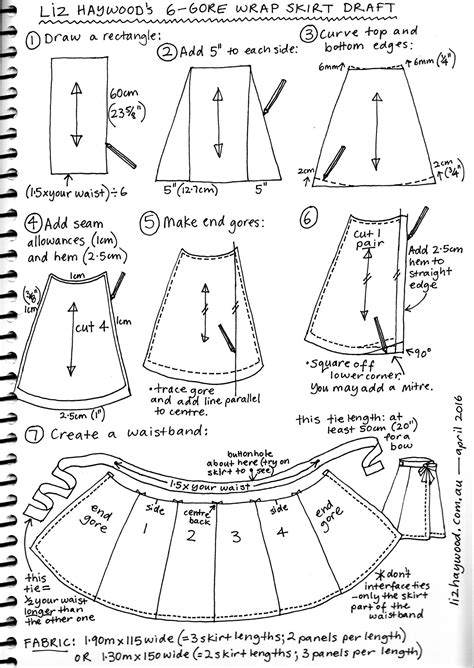 LIZ HAYWOOD'S 6-GORE WRAP SKIRT DRAFT
① Draw a rectangle:
60cm
(23 5/8")
(1.5xyour waist)÷6
② Add 5" to each side:
5"(12.7cm)
5"
③ Curve top and
bottom edges:
6mm
6mm (¼")
2cm
2cm
(¾")
④ Add seam
allowances (1cm)
and hem (2.5cm)
1cm
(3/8")
1cm
1cm
cut 4
2.5cm (1")
⑤ Make end gores:
•trace gore
and add line parallel
to centre.
⑥
cut 1
pair
Add 2.5cm
hem to
straight
edge
90°
•Square off
lower corner.
You may add a Mitre.
⑦ Create a waistband:
this tie length: at
least 50cm (20")
for a
bow
buttonhole
about here (try on
skirt to see)
1.5xyour waist
end
gore
side
1
centre
back
2
3
side
4
end
gore
this
tie=
½your waist
longer than
the other one
*don't
interface ties
-only the skirt
part of the
waistband
lizhaywood.com.au — april 2016
FABRIC: 1.90m x 115 wide (=3 skirt lengths; 2 panels per length)
OR 1.30m x 150 wide (=2 skirt lengths; 3 panels per length)